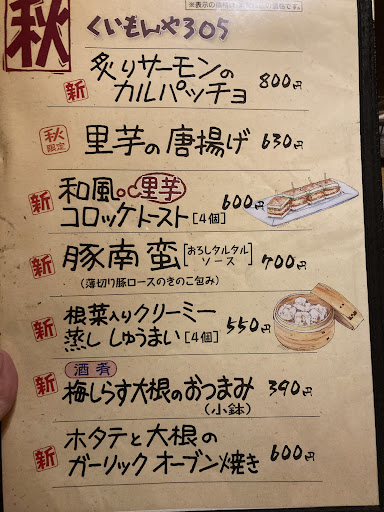 ※表示の価格は
税です。
秋
くいもんや305
新 炙りサーモンの
カルパッチョ 800円
秋限定 里芋の唐揚げ 630円
新 和風。里芋
コロッケトースト[4個] 600円
新 豚南蛮[おろしタルタルソース] 700円
(薄切り豚ロースのきのこ包み)
新 根菜入りクリーミー
蒸ししゅうまい[4個] 550円
酒肴
新 梅しらす大根のおつまみ 390円
(小鉢)
新 ホタテと大根の
ガーリックオーブン焼き 600円